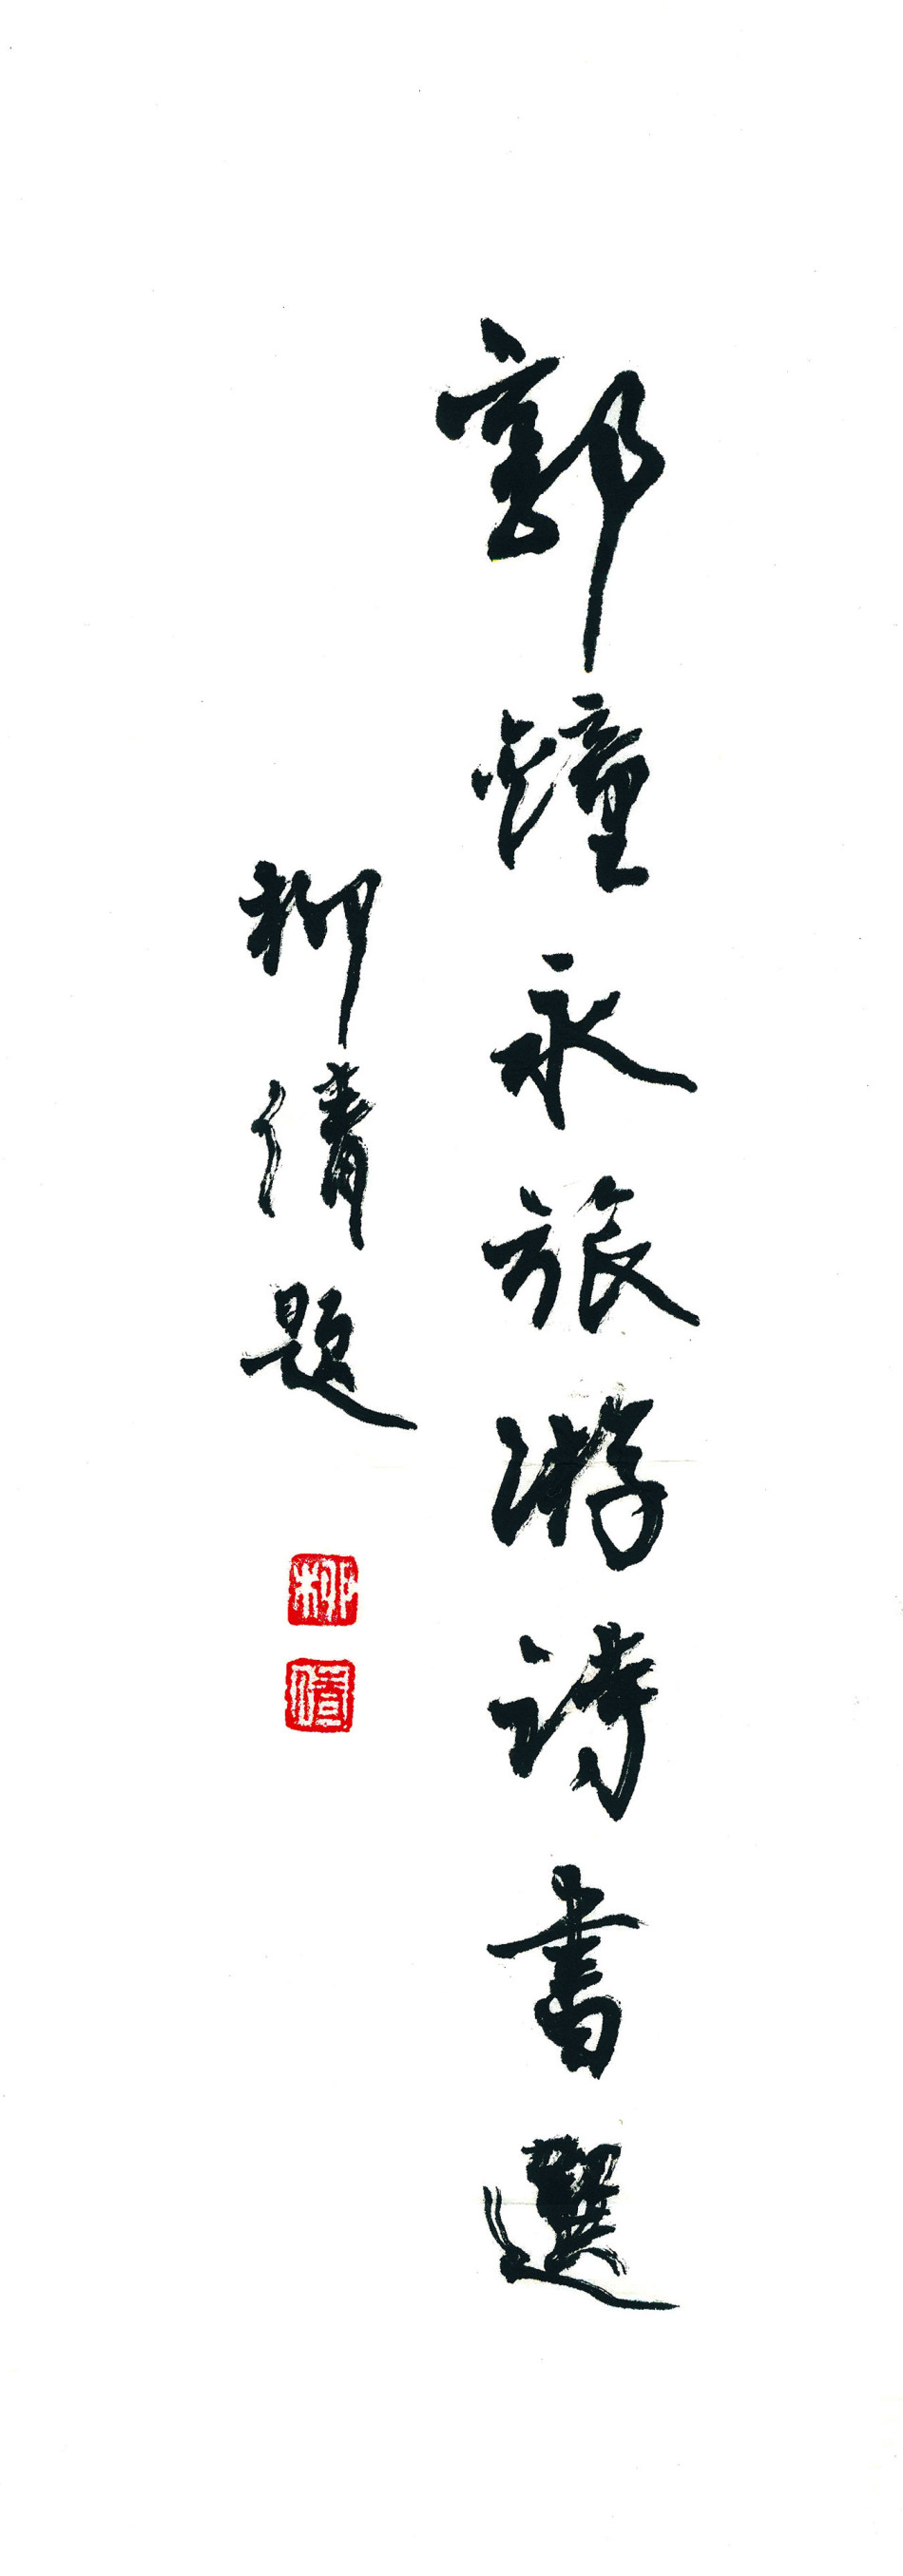 郭鐘永旅游詩書選
柳倩題
柳
倩